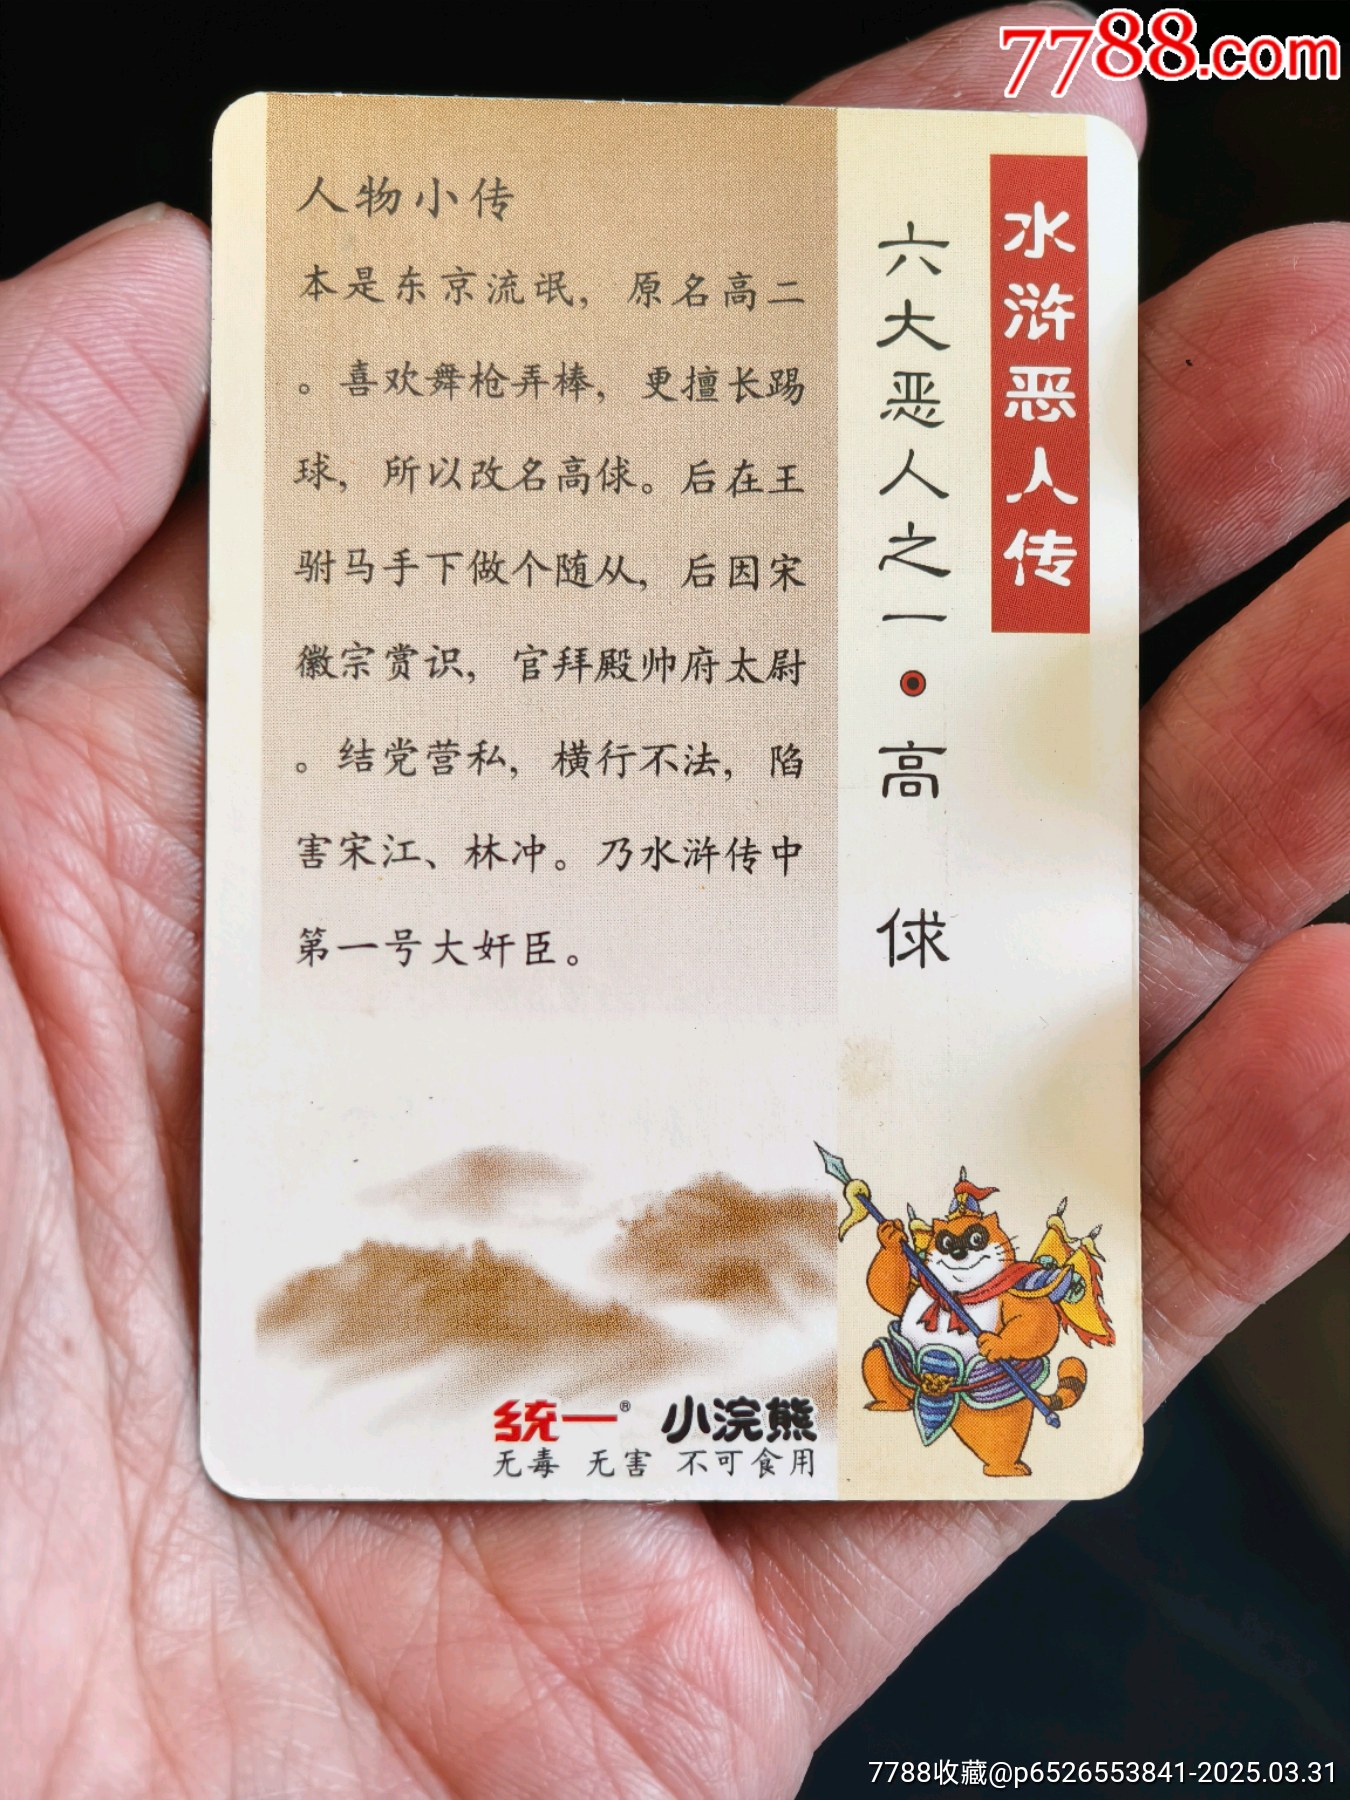 7788.com
水浒恶人传
六大恶人之一·高俅
人物小传
本是东京流氓，原名高二
。喜欢舞枪弄棒，更擅长踢
球，所以改名高俅。后在王
驸马手下做个随从，后因宋
徽宗赏识，官拜殿帅府太尉
。结党营私，横行不法，陷
害宋江、林冲。乃水浒传中
第一号大奸臣。
统一® 小浣熊
无毒 无害 不可食用
7788收藏@p6526553841-2025.03.31